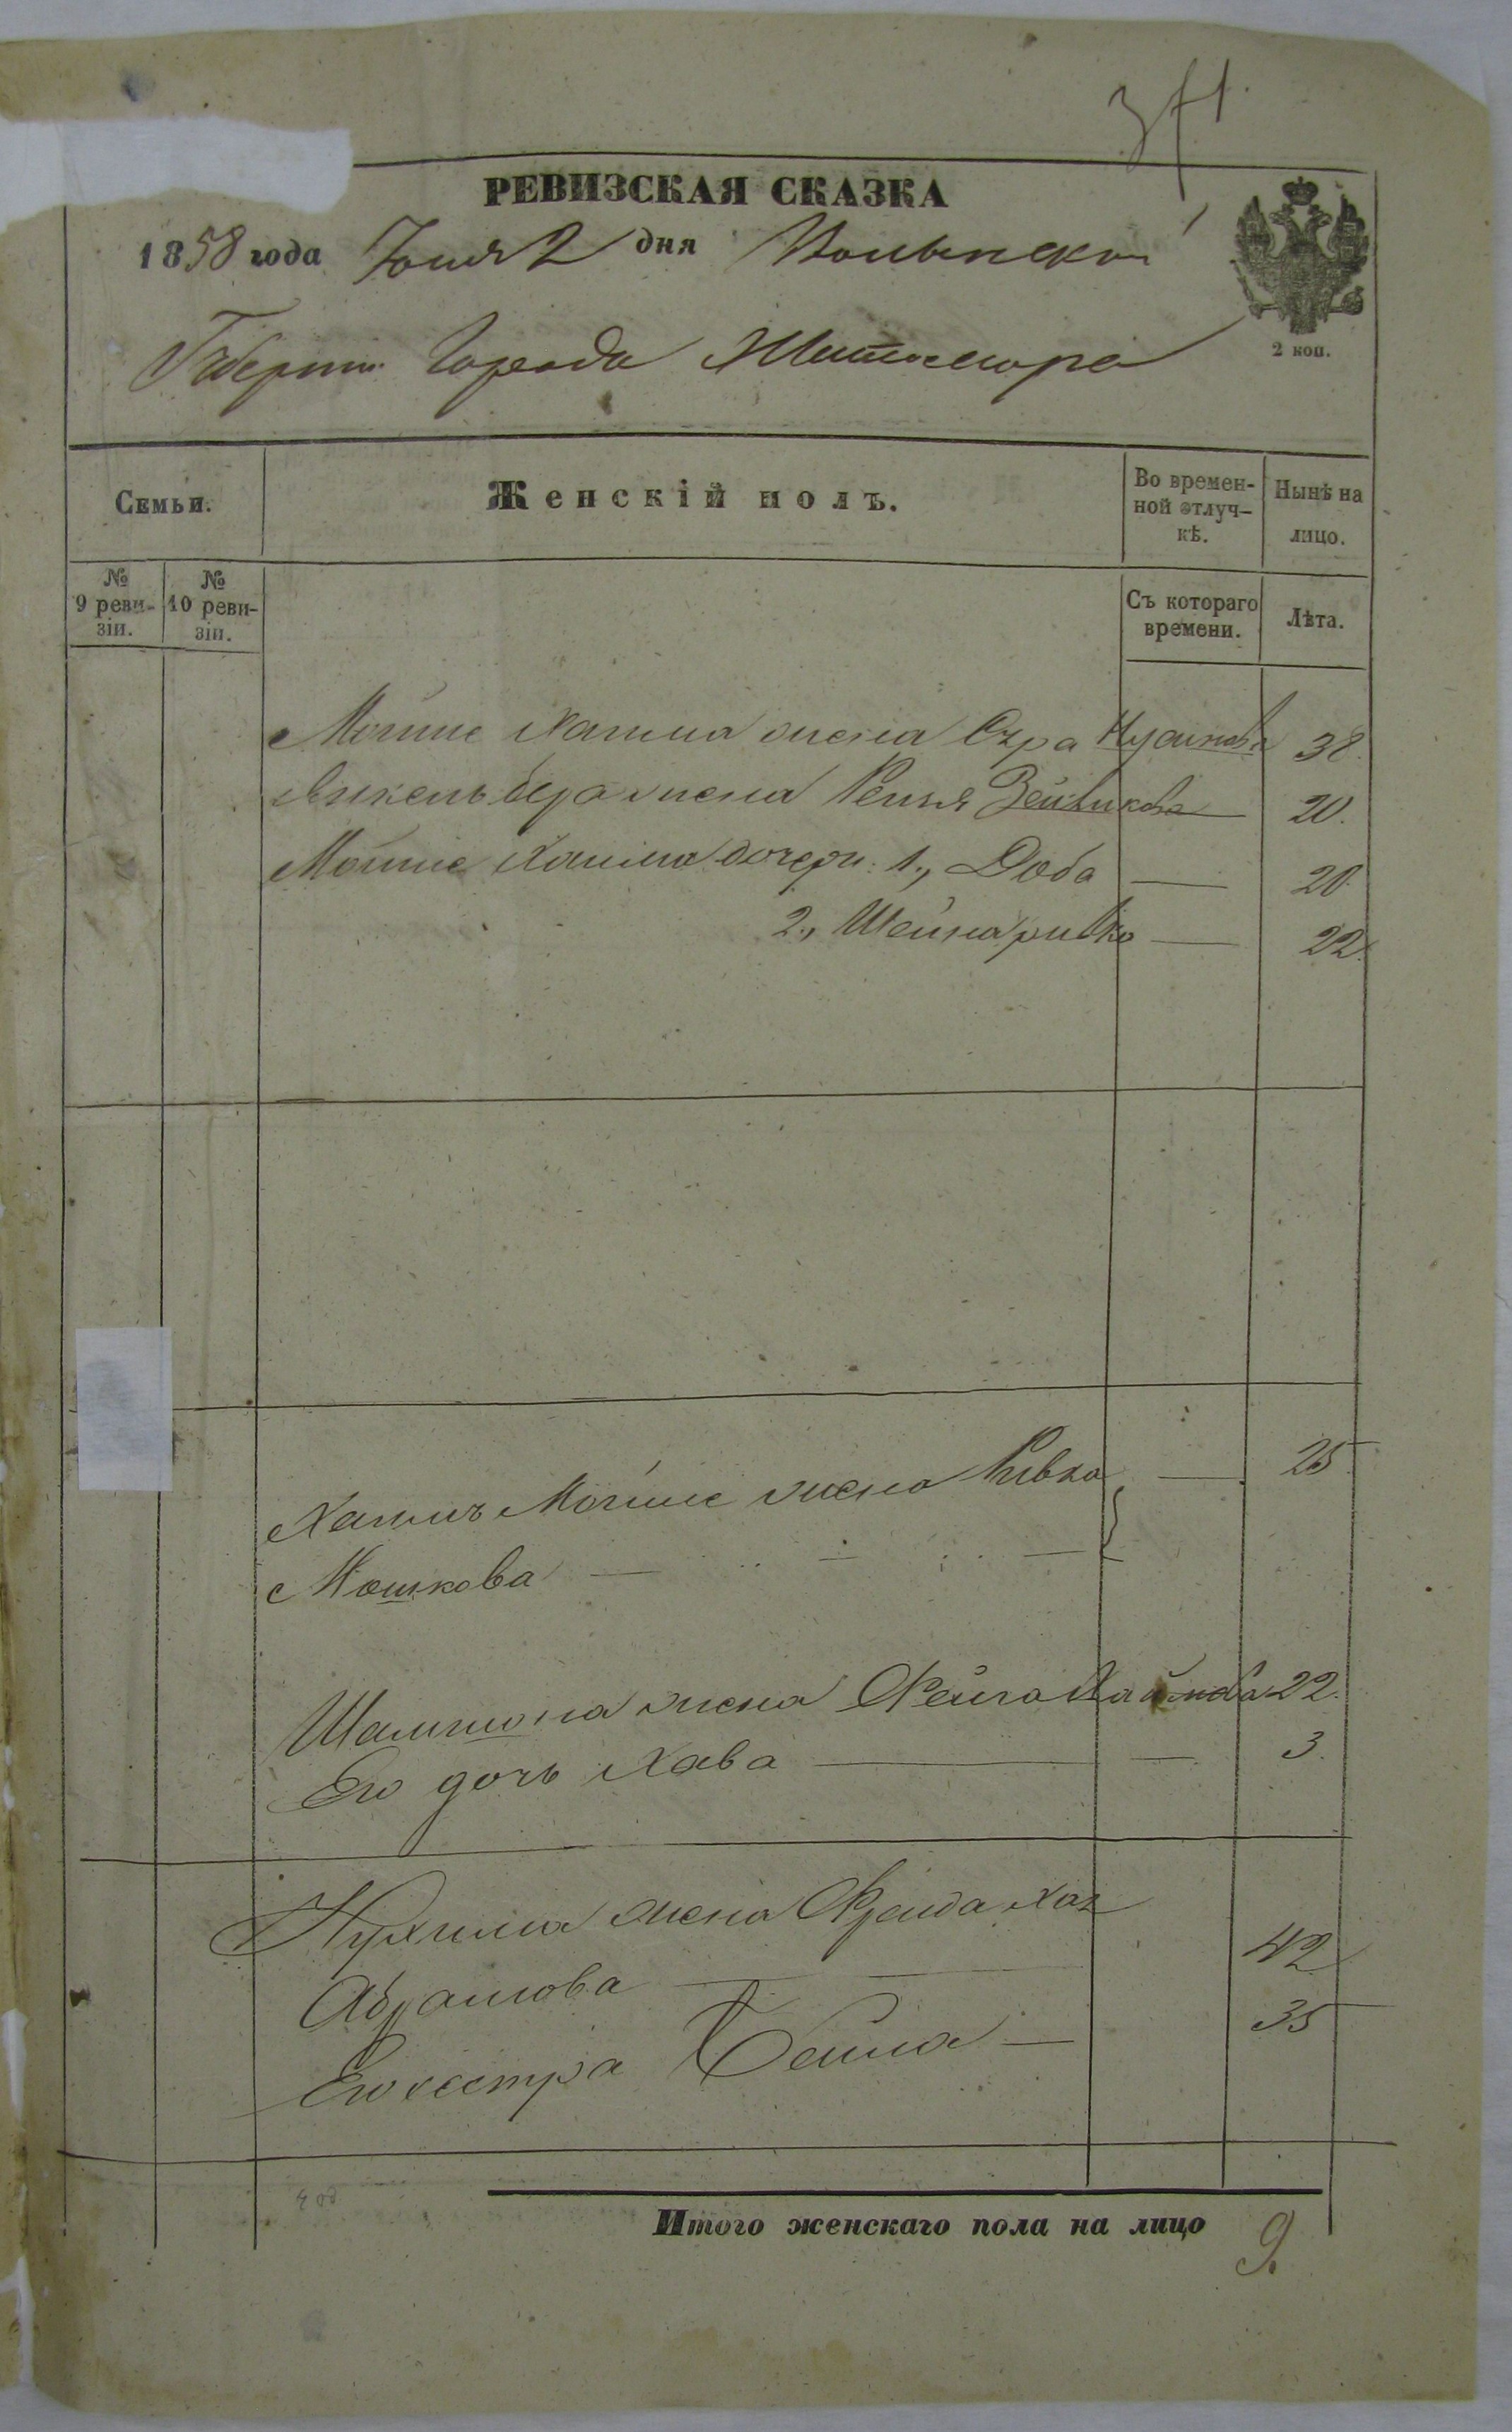 РЕВИЗСКАЯ СКАЗКА
1858 года Юня 2 дня Волынской
2 коп.
Губерніи Города Житомира
Семьи.
Женскій полъ.
Во времен-
ной отлуч-
кѣ.
Нынѣ на
лицо.
№
9 реви-
зіи.
№
10 реви-
зіи.
Съ котораго
времени.
Лѣта.
Мошше Хаима жена Сура 38.
бера жена 20.
Мошше Хаима дочери: 1., Доба — 20
2., Шейна ривка — 22.
Хаимъ Мошше жена Ривка — 25
Мошкова
Шамшона жена Фейга Хаимова 22.
Его дочь Хава — 3.
Нухима жена Фрейда Хая
Абрамова — 42
Его сестра Бейла — 35
Итого женскаго пола на лицо 9.